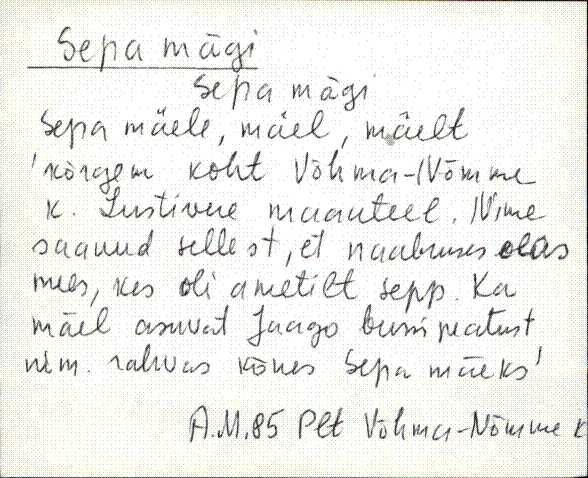 Sepa mägi
Sepa mägi
Sepa mäele, mäel, mäelt
'kõrgem koht Võhma-Nõmme
k. Lustivere maanteel. Nime
saanud sellest, et naabruses elas
mees, kes oli ametilt sepp. Ka
mäel asuvat Jaago bussipeatust
nim. rahvas kõnes Sepa mäeks'
A.M.85 Plt Võhma-Nõmme k